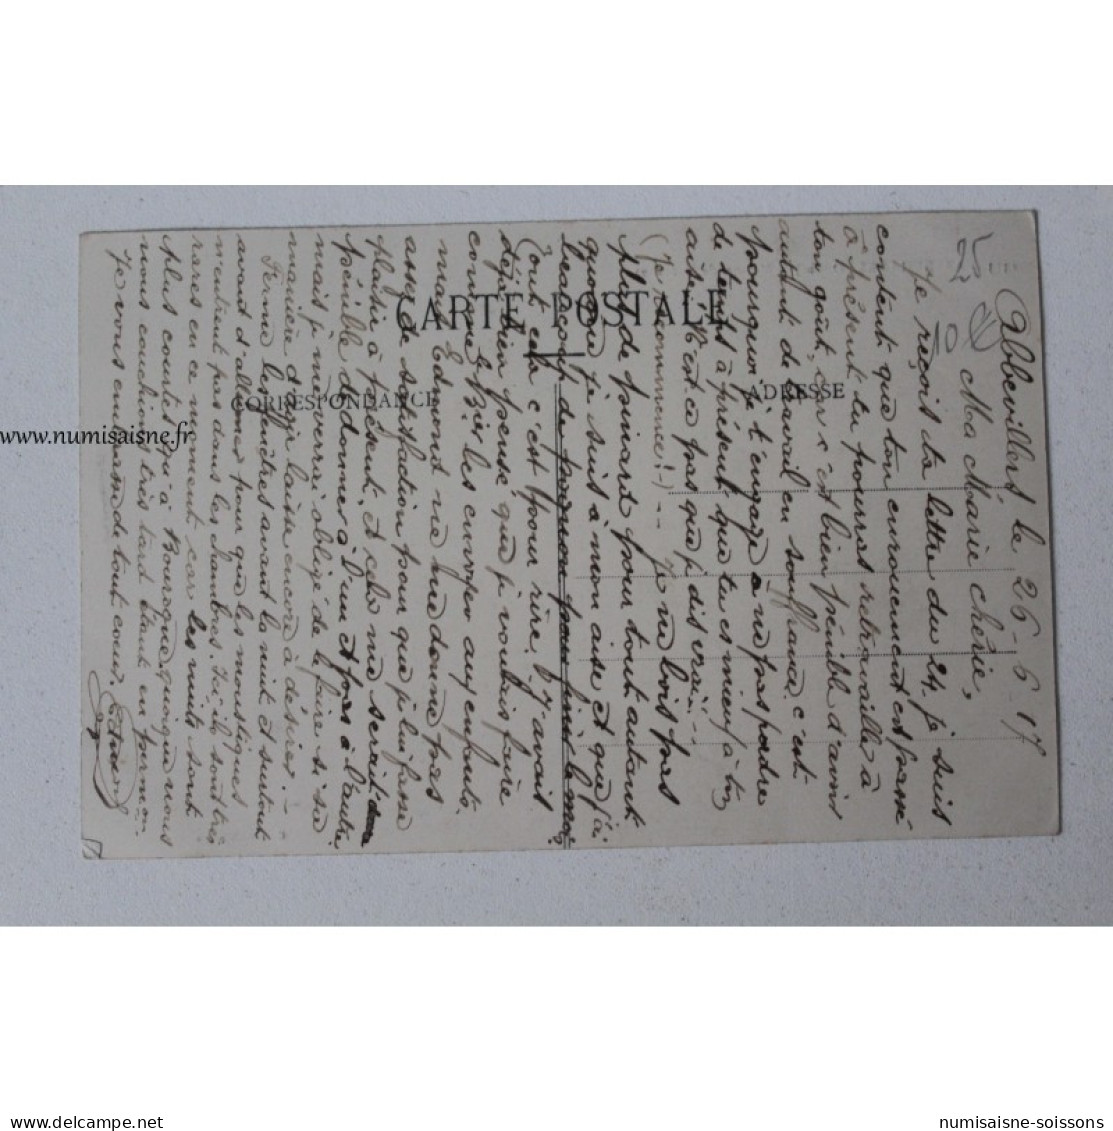 Abbevillers le 26-6-17
Ma Marie chérie,
Je reçois ta lettre du 24. je suis
content que ton enrouement est passé
à présent tu pourras retravailler à
ton goût, car c'est bien pénible d'avoir
autant de travail en souffrance, c'est
pourquoi je t'engage à ne pas perdre
de temps à présent que tu es mieux à ton
aise. N'est-ce pas que je dis vrai ...
(je recommence!-) --- je ne bois pas
plus de pinard pour tout autant
quoique je suis à mon aise et que j'ai
beaucoup de
Tout cela c'est pour rire, il y avait
déjà bien pensé que je voulais faire
comme hier les envoyer aux enfants.
mais Edmond ne me donne pas
assez de satisfaction pour que je lui fasse
plaisir à présent, et cela me serait
pénible d'donner à l'un et pas à l'autre
mais je me verrai obligé de le faire si sa
manière d'agir laisse encore à désirer. -
Ferme les fenêtres avant la nuit et surtout
avant d'allumer pour que les mostiques
n'entrent pas dans les chambres. Ici, ils sont très
rares en ce moment, car les nuits sont
plus courtes qu'à quoique nous
nous couchions très tard étant en permon.
Je vous embrasse de tout coeur,
25
10
CARTE POSTALE
CORRESPONDANCE
ADRESSE
www.numisaisne.fr
delcampe.net
numisaisne-soissons